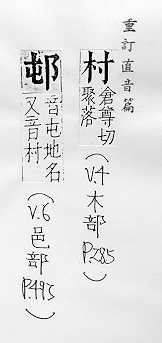 重訂直音篇
村 倉尊切
聚落
(V.4木部P.285)
邨 音屯地名
又音村
(V.6邑部P.493)